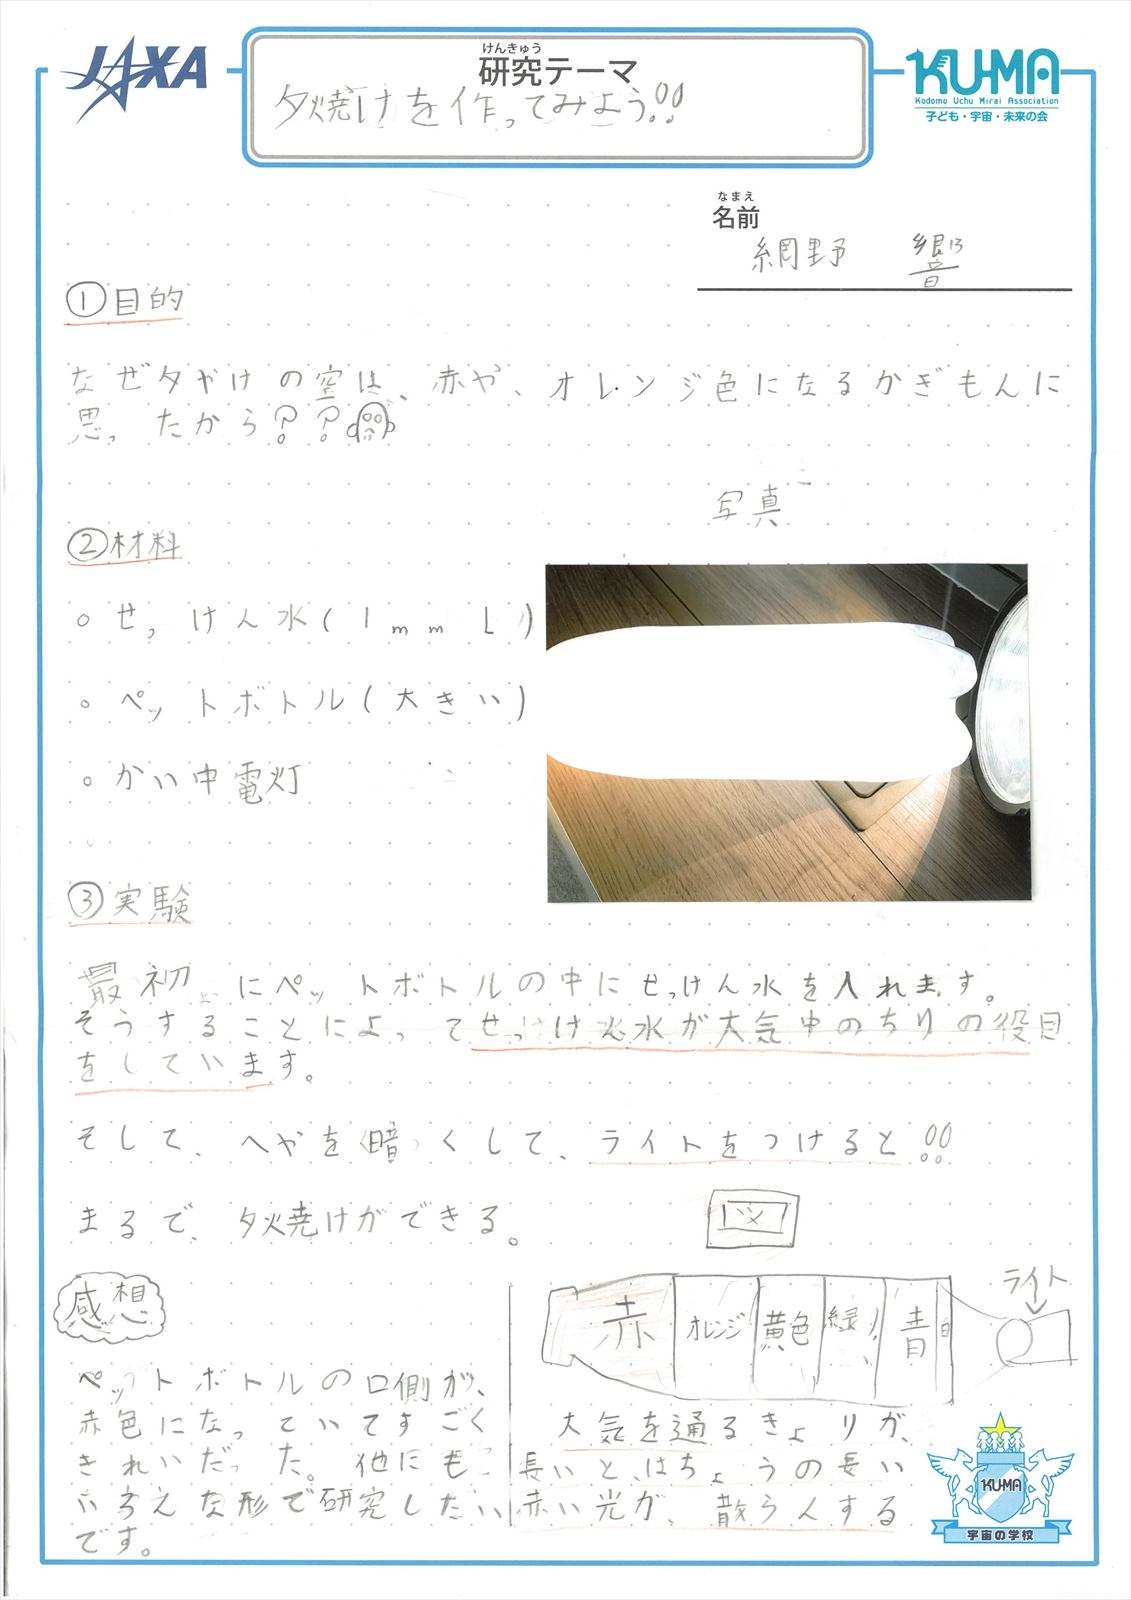 JAXA
けんきゅう
研究テーマ
夕焼けを作ってみよう!!
KU-MA
Kodomo Uchu Mirai Association
子ども・宇宙・未来の会
なまえ
名前
網野 響
①目的
なぜ夕やけの空は、赤や、オレンジ色になるかぎもんに
思ったから??
写真
②材料
○せっけん水(1mmL)
○ペットボトル(大きい)
○かい中電灯
③実験
最初にペットボトルの中にせっけん水を入れます。
そうすることによってせっけん水が大気中のちりの役目
をしています。
そして、へやを暗くして、ライトをつけると!!
まるで、夕焼けができる。
図
感想
ペットボトルの口側が、
赤色になっていてすごく
きれいだった。他にも
いろんな形で研究したい
です。
赤 オレンジ 黄色 緑 青 白
ライト
大気を通るきょりが、
長いと、はちょうの長い
赤い光が、散らんする
KU-MA
宇宙の学校